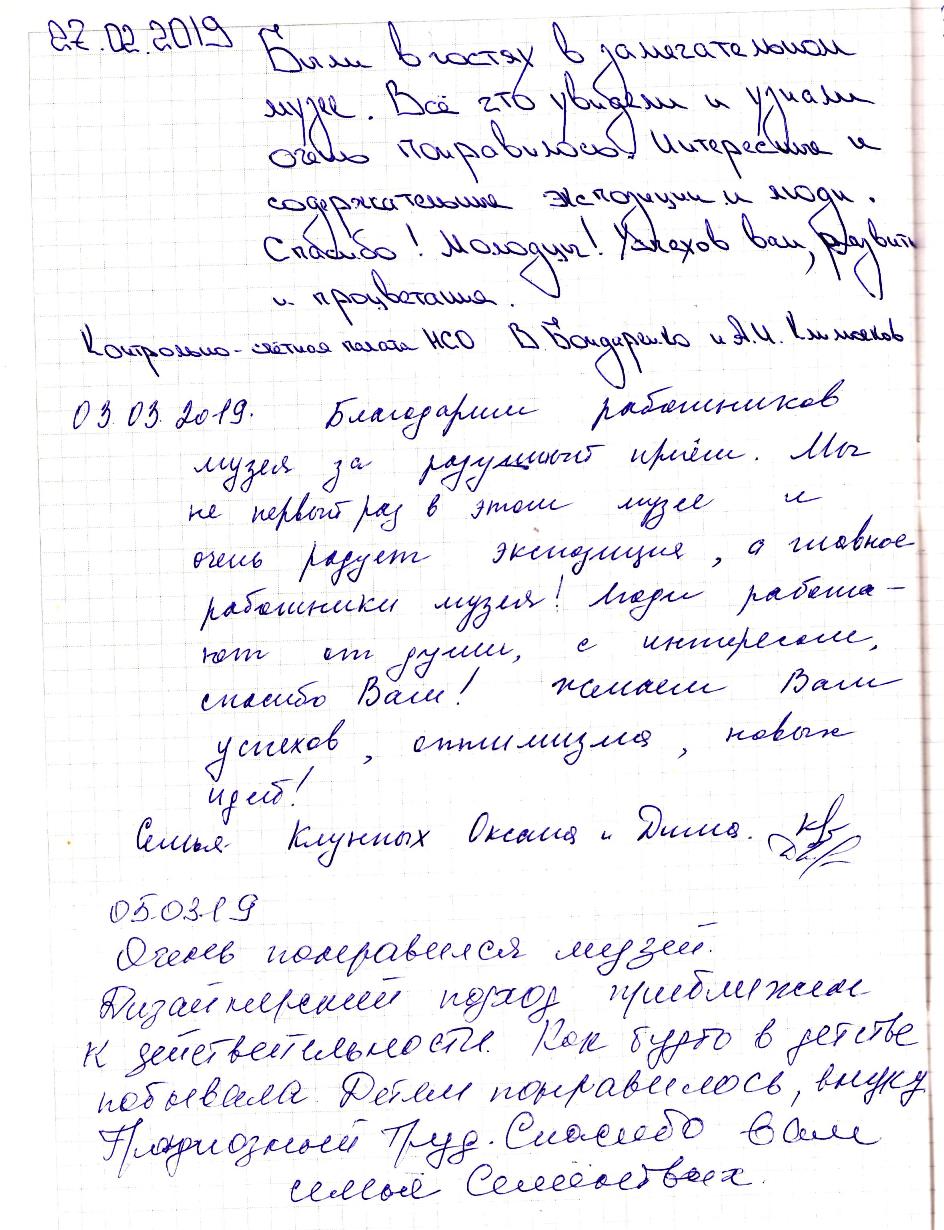 27.02.2019 Были в гостях в замечательном
музее. Всё что увидели и узнали
очень понравилось. Интересные и
содержательные экспозиции и люди.
Спасибо! Молодцы! Успехов вам, развити
и процветания.
Контрольно-счётная палата НСО В. Бондаренко и А.И.
03.03.2019. Благодарим работников
музея за радушный приём. Мы
не первый раз в этом музее и
очень радует экспозиция, а главное
работники музея! Люди работа-
ют от души, с интересом,
спасибо Вам! Желаем Вам
успехов, оптимизма, новых
идей!
Семья Клунных Оксана и Дима.
05.03.19
Очень понравился музей.
Дизайнерский подход приближен
к действительности. Как будто в детстве
побывала. Детям понравилось, внуку.
Грандиозный труд. Спасибо вам
семья